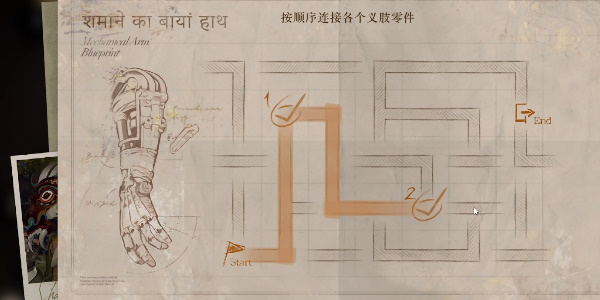 शमाने का बायां हाथ
按顺序连接各个义肢零件
Mechanical Arm
Blueprint
1
2
End
Start